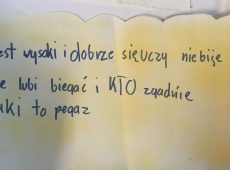 jest wysoki i dobrze się uczy nie bije
lubi biegać i KTO zgadnie
to pegaz